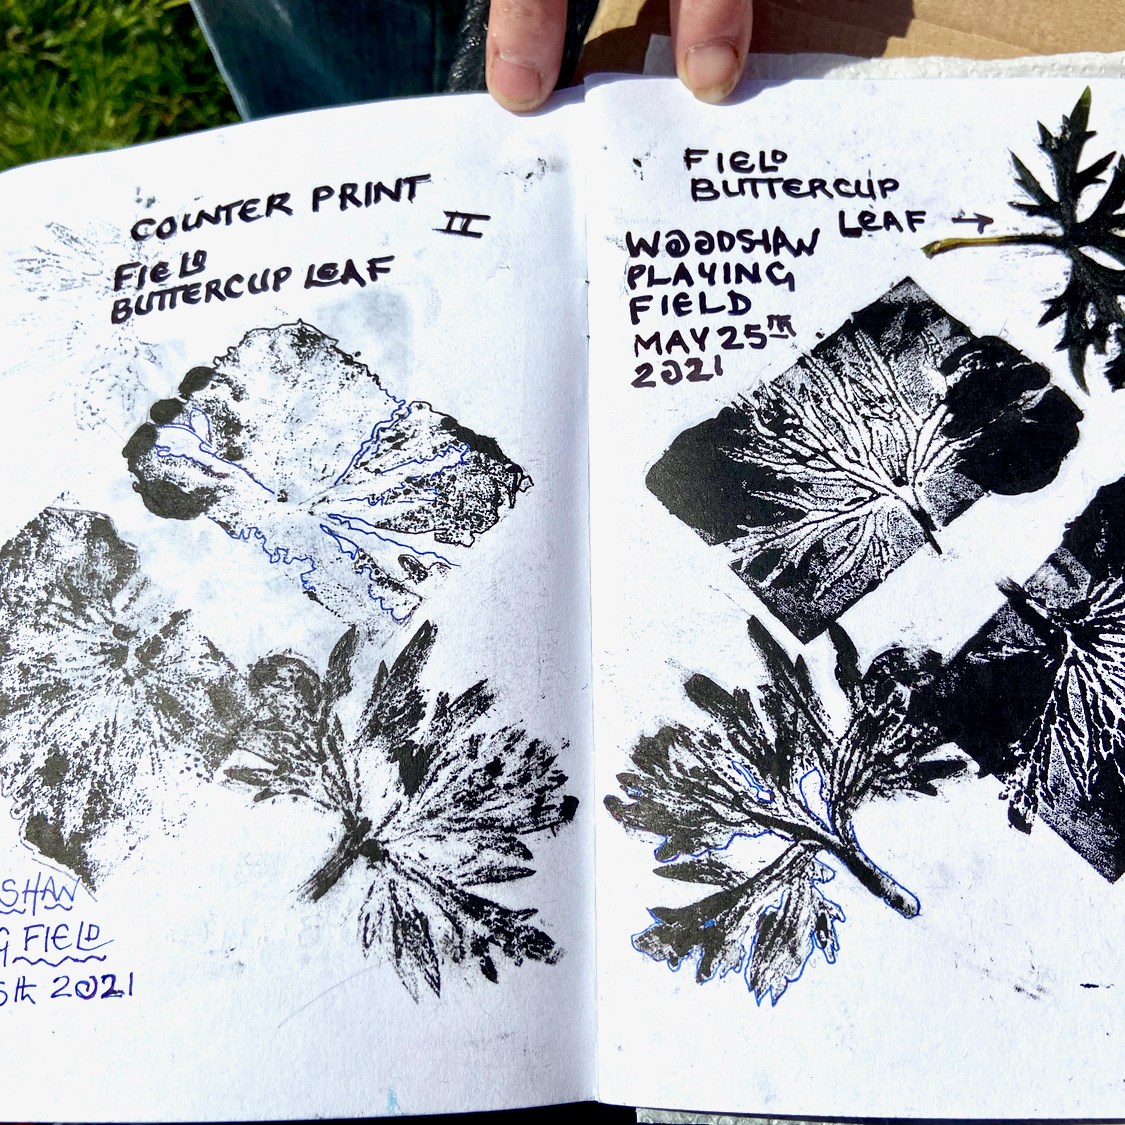 COUNTER PRINT
II
FIELD
BUTTERCUP LEAF
SHAW
G FIELD
5th 2021
FIELD
BUTTERCUP
LEAF →
WOODSHAW
PLAYING
FIELD
MAY 25TH
2021